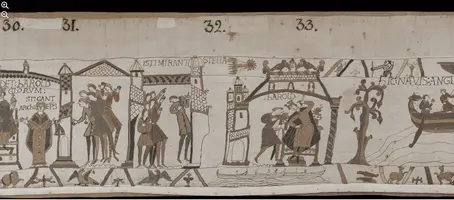 30. 31. 32. 33.
STIGANT
ARChIEPS
ISTI MIRANT STELLA
hAROLD
NAVIS:ANGL